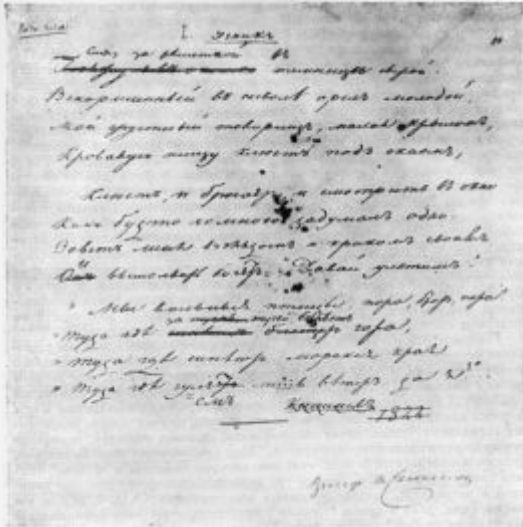 I. Узникъ
Сижу за решеткой въ
темницѣ сырой.
Вскормленный въ неволѣ орелъ молодой,
Мой грустный товарищъ, махая крыломъ,
Кровавую пищу клюетъ подъ окномъ,
Клюетъ, и бросаетъ, и смотритъ въ окно
Какъ будто со мною задумалъ одно.
Зоветъ меня взглядомъ и крикомъ своимъ
И вымолвить хочетъ: Давай улетимъ!
Мы вольныя птицы; пора, братъ, пора
за тучей бѣлѣетъ
Туда гдѣ гора,
Туда гдѣ синѣютъ морскіе края
Туда гдѣ гуляемъ лишь вѣтръ да я
Кишиневъ
1822